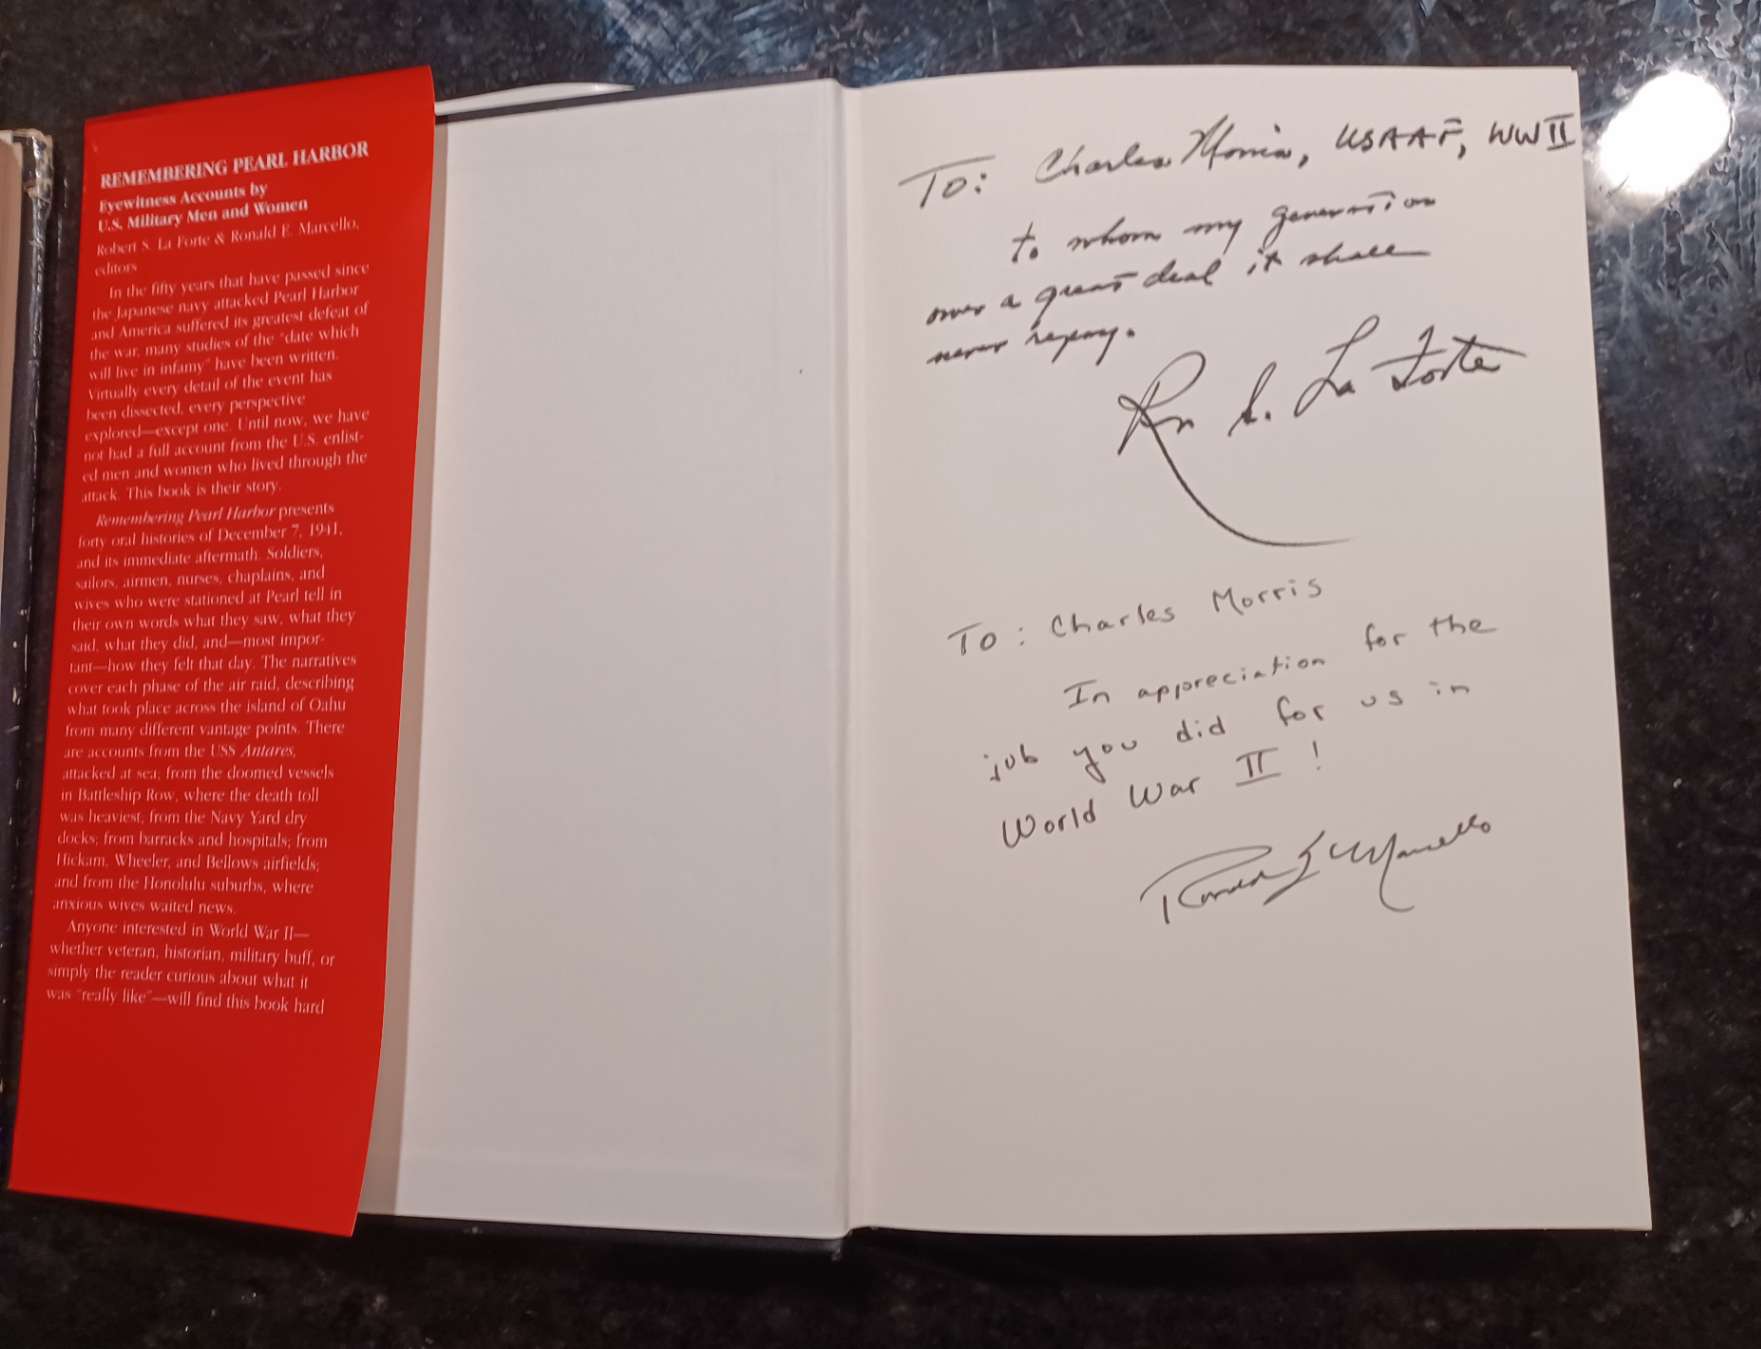 REMEMBERING PEARL HARBOR
Eyewitness Accounts by
U.S. Military Men and Women
Robert S. La Forte & Ronald E. Marcello,
editors
In the fifty years that have passed since
the Japanese navy attacked Pearl Harbor
and America suffered its greatest defeat of
the war, many studies of the "date which
will live in infamy" have been written.
Virtually every detail of the event has
been dissected, every perspective
explored—except one. Until now, we have
not had a full account from the U.S. enlist-
ed men and women who lived through the
attack. This book is their story.
Remembering Pearl Harbor presents
forty oral histories of December 7, 1941,
and its immediate aftermath. Soldiers,
sailors, airmen, nurses, chaplains, and
wives who were stationed at Pearl tell in
their own words what they saw, what they
said, what they did, and—most impor-
tant—how they felt that day. The narratives
cover each phase of the air raid, describing
what took place across the island of Oahu
from many different vantage points. There
are accounts from the USS Antares,
attacked at sea; from the doomed vessels
in Battleship Row, where the death toll
was heaviest; from the Navy Yard dry
docks; from barracks and hospitals; from
Hickam, Wheeler, and Bellows airfields;
and from the Honolulu suburbs, where
anxious wives waited news.
Anyone interested in World War II—
whether veteran, historian, military buff, or
simply the reader curious about what it
was "really like"—will find this book hard
To: Charles Morris, USAAF, WWII
to whom my generation
owes a great deal it shall
never repay.
R. S. La Forte
To: Charles Morris
In appreciation for the
job you did for us in
World War II!
Ronald E Marcello